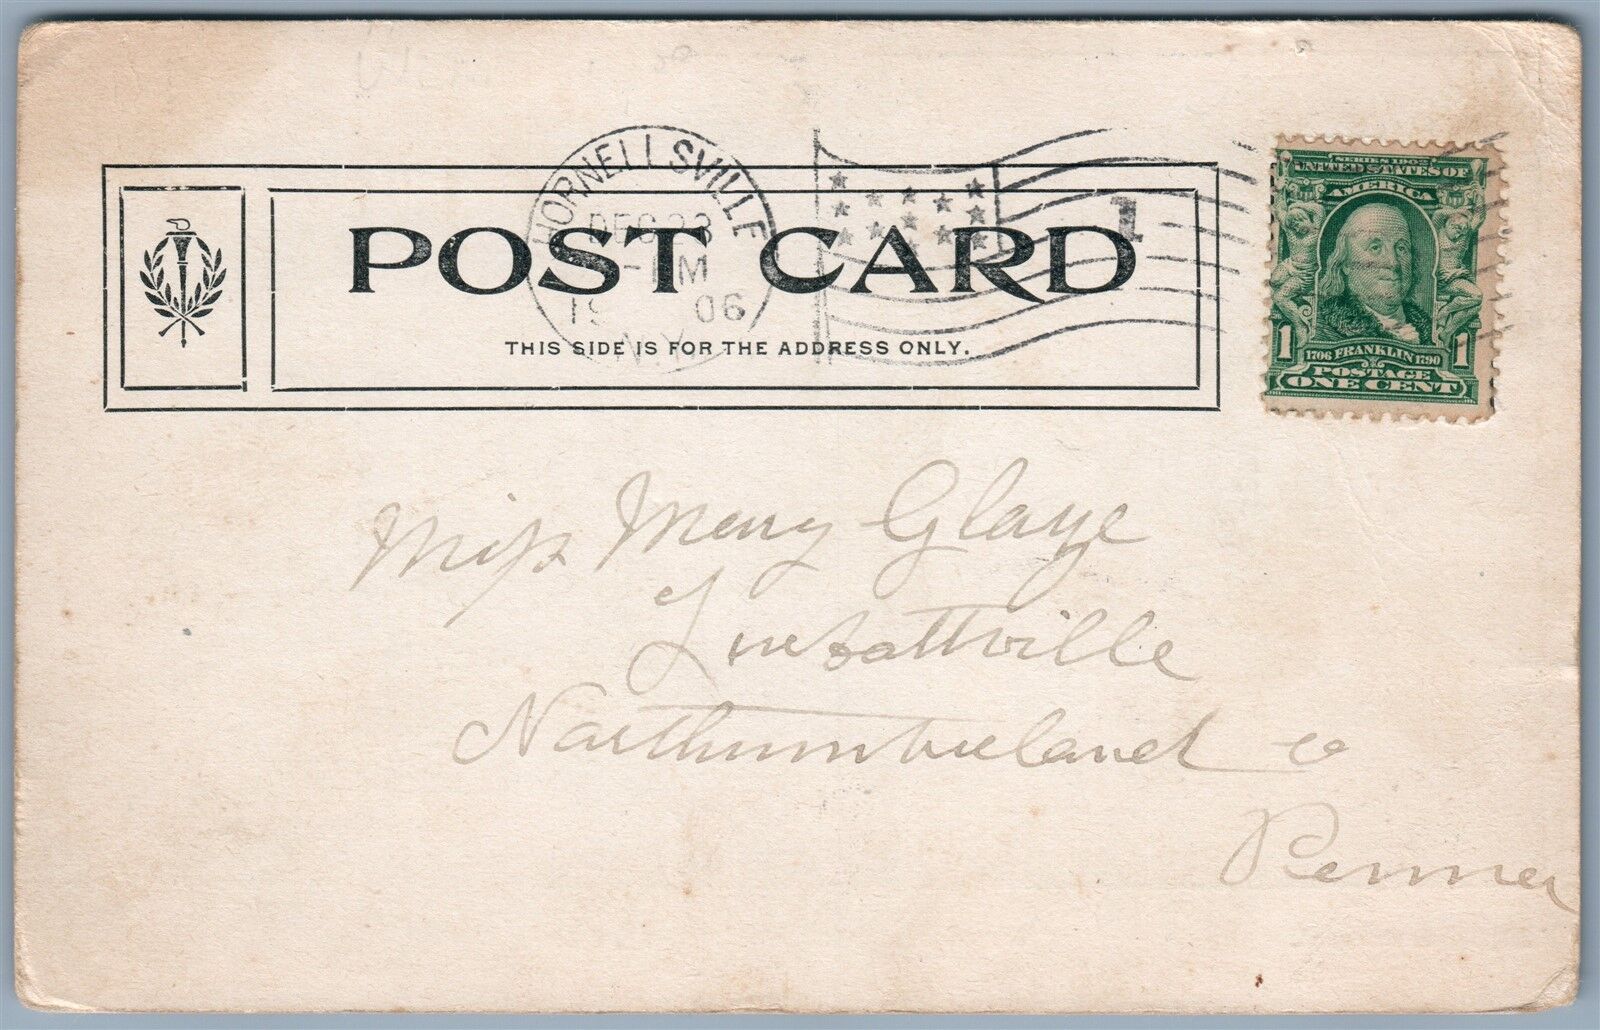 HORNELLSVILLE
DEC 23
M
1906
N.Y.
1
POST CARD
THIS SIDE IS FOR THE ADDRESS ONLY.
SERIES 1902
UNITED STATES OF
AMERICA
1 1706 FRANKLIN 1790 1
POSTAGE
ONE CENT
Miss Mary Glaze
Northumberland co
Penna